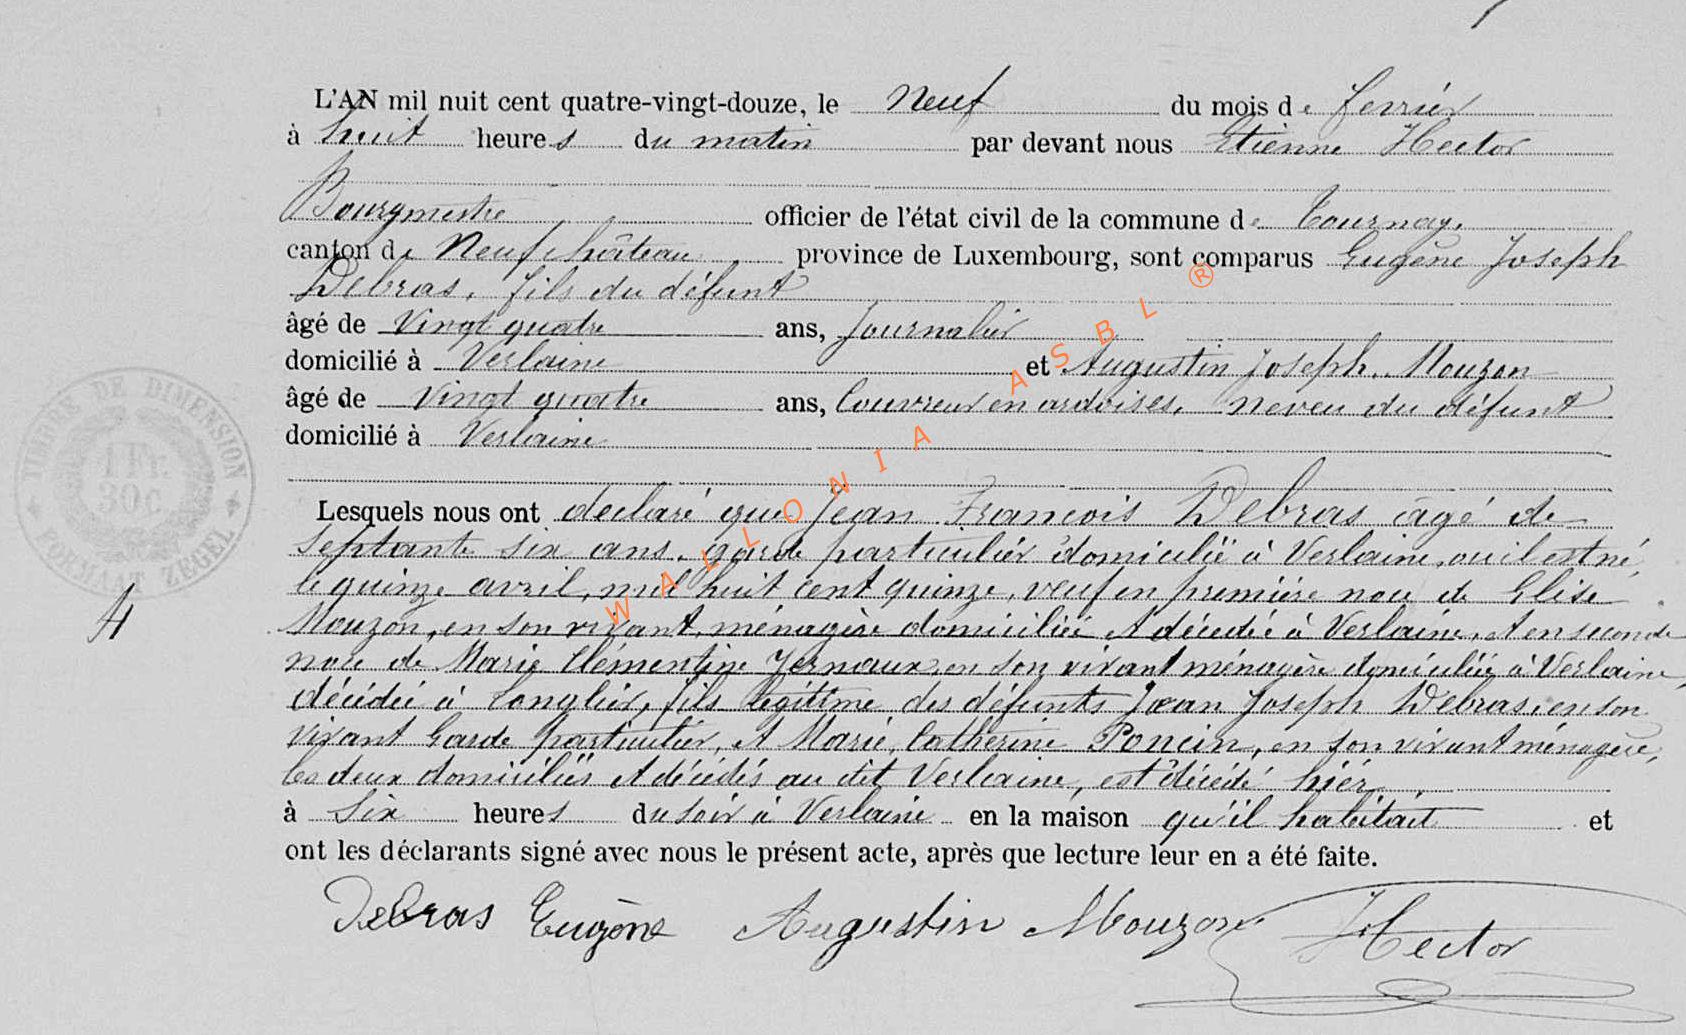 L'AN mil huit cent quatre-vingt-douze, le neuf du mois de fevrier
à huit heures du matin par devant nous Etienne Hector
Bourgmestre officier de l'état civil de la commune de Tournay.
canton de Neufchâteau province de Luxembourg, sont comparus Eugène Joseph
Debras, fils du défunt
âgé de vingt quatre ans, Journalier
domicilié à Verlaine et Augustin Joseph Mouzon
âgé de vingt quatre ans, Couvreur en ardoises, neveu du défunt
domicilié à Verlaine
Lesquels nous ont declaré que Jean François Debras âgé de
septante six ans, garde particulier domicilié à Verlaine, ou il est né,
le quinze avril, mil huit cent quinze, veuf en première noce de Elise
Mouzon, en son vivant, ménagère domiciliée et décédée à Verlaine, et en seconde
noce de Marie Clémentine Jernaux, en son vivant ménagère domiciliée à Verlaine,
décédée à Longlier, fils légitime des défunts Jean Joseph Debras, en son
vivant Garde particulier, et Marie, Catherine Poncin, en son vivant ménagère,
les deux domiciliés et décédés au dit Verlaine, est décédé hier
à six heures du soir à Verlaine en la maison qu'il habitait et
ont les déclarants signé avec nous le présent acte, après que lecture leur en a été faite.
Debras Eugène Augustin Mouzon Hector
4
TIMBRE DE DIMENSION
1 Fr.
30c
FORMAAT ZEGEL
WALLONIA ASBL ®